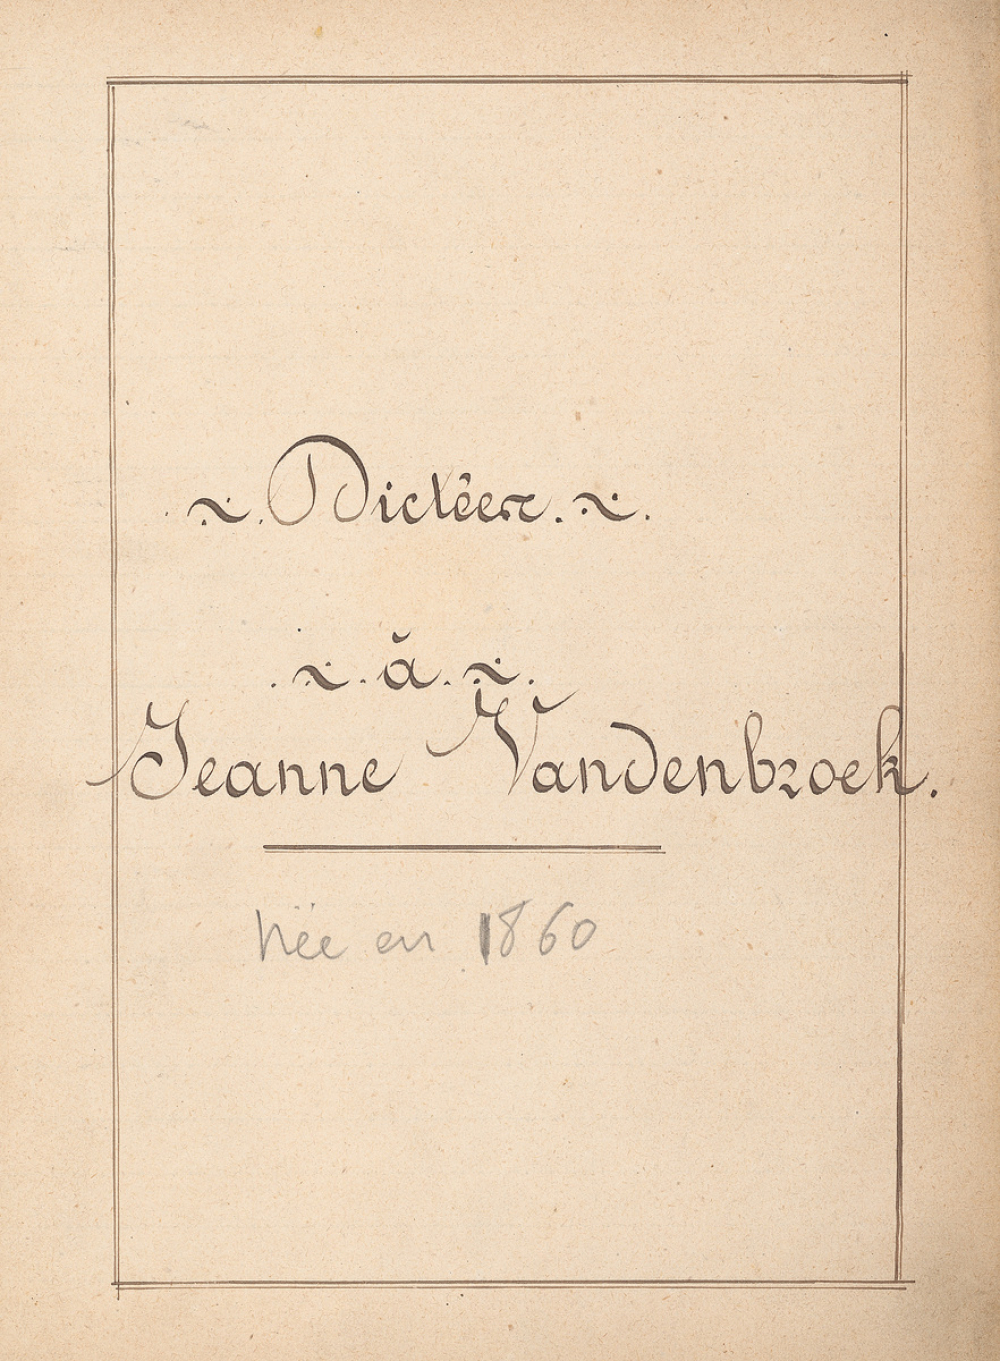 Dictées.
à
Jeanne Vandenbroek.
née en 1860